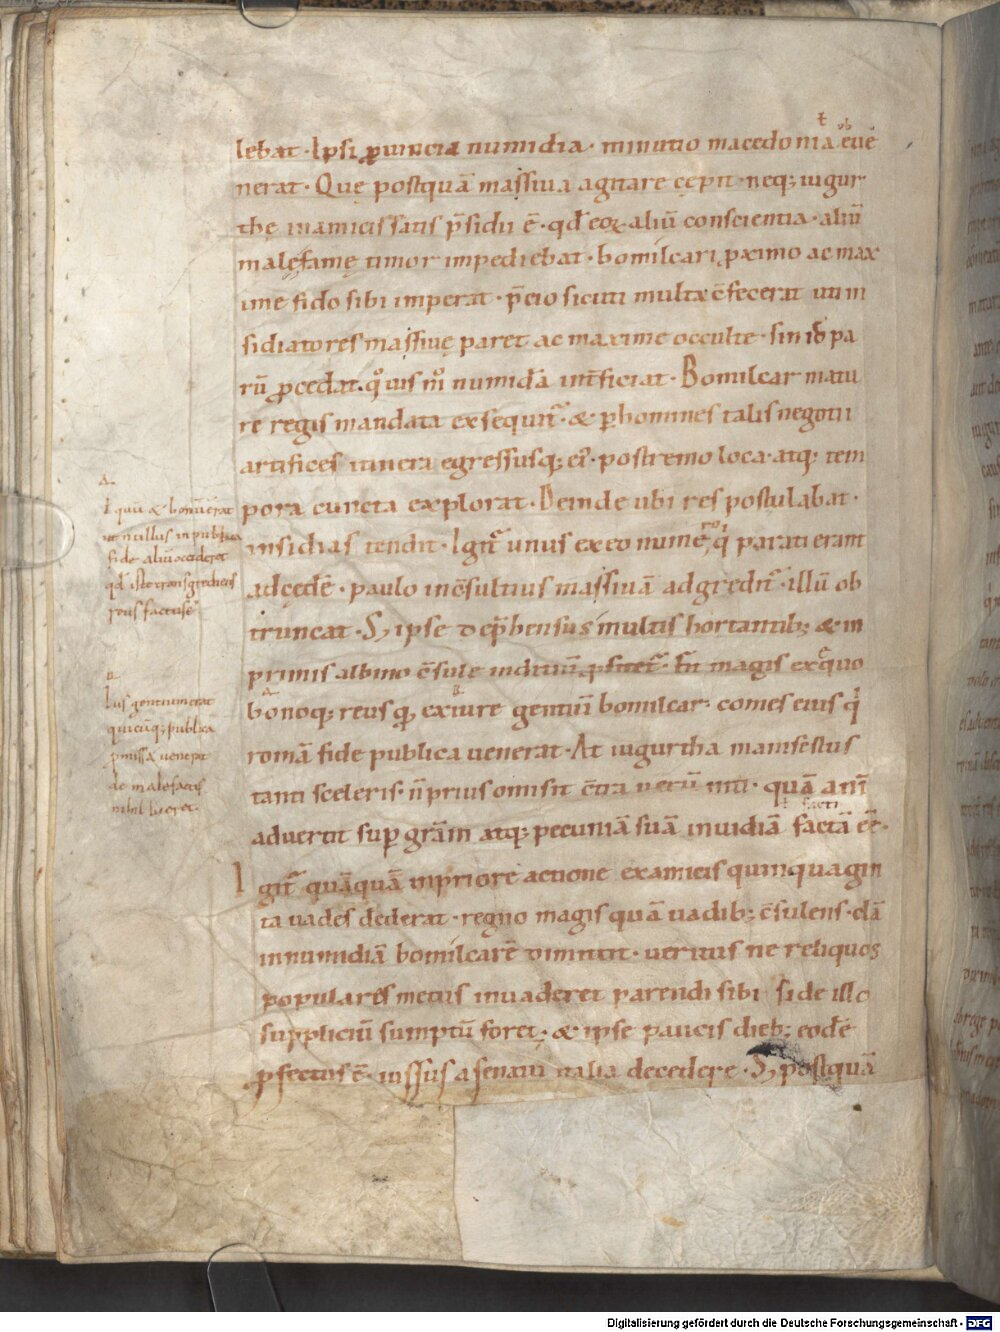 lebat · Ipsi ꝓuincia numidia · minutio macedonia euē
nerat · Quę postquā massiua agitare cępit · neq; iugur
thę in amicis satis p̄sidii ē · qđ eoꝝ aliū conscientia · aliū
malę famę timor impediebat · bomilcari ꝓximo ac max
ime fido sibi imperat · p̄cio sicuti multa c̄fecerat ut in
sidiatores massiuę paret ac maxime occulte · sin id pa
rū ꝓcedat. quis m̊ numidā int̄ficiat · Bomilcar matu
re regis mandata exsequit᷑ · & ꝑ homines talis negotii
artifices itinera egressusq; ei᷑ · postremo loca · atq; tem
pora cuncta explorat · Deinde ubi res postulabat ·
insidias tendit · Igit᷑ unus ex eo numero qui parati erant
ad cędē · paulo inc̄sultius massiuā adgredit᷑ · illū ob
truncat · Sꝫ ipse dep̄hensus multis hortantib; & in
primis albino c̄sule indiciū ꝓfitet᷑ · fit magis ex ęquo
bonoq; reus quā ex iure gentiū bomilcar · comes eius qi
romā fide publica uenerat · At iugurtha manifestus
tanti sceleris · n̄ prius omisit c̄tra uerū niti · quā anī
aduertit suꝑ grām atq; pecuniā suā inuidiā factā eē ·
ł facti
Igit᷑ quāquā in priore actione ex amicis quinquagin
ta uades dederat · regno magis quā uadib; c̄sulens · clā
in numidiā bomilcarē dimittit · ueritus ne reliquos
populares metus inuaderet parendi sibi si de illo
suppliciū sumptū foret · & ipse paucis dieb; eodē
ꝓfectus ē · iussus a senatu italia decedere · Sꝫ postquā
A
Equū & bonū erat
ut nullus in publica
fide aliū occideret
qđ iste transgrediens
reus factus ē
B
Ius gentium erat
qui cūq; publica
ꝓmissa uenerat
de malefactis
nihil lueret ·
Digitalisierung gefördert durch die Deutsche Forschungsgemeinschaft - DFG